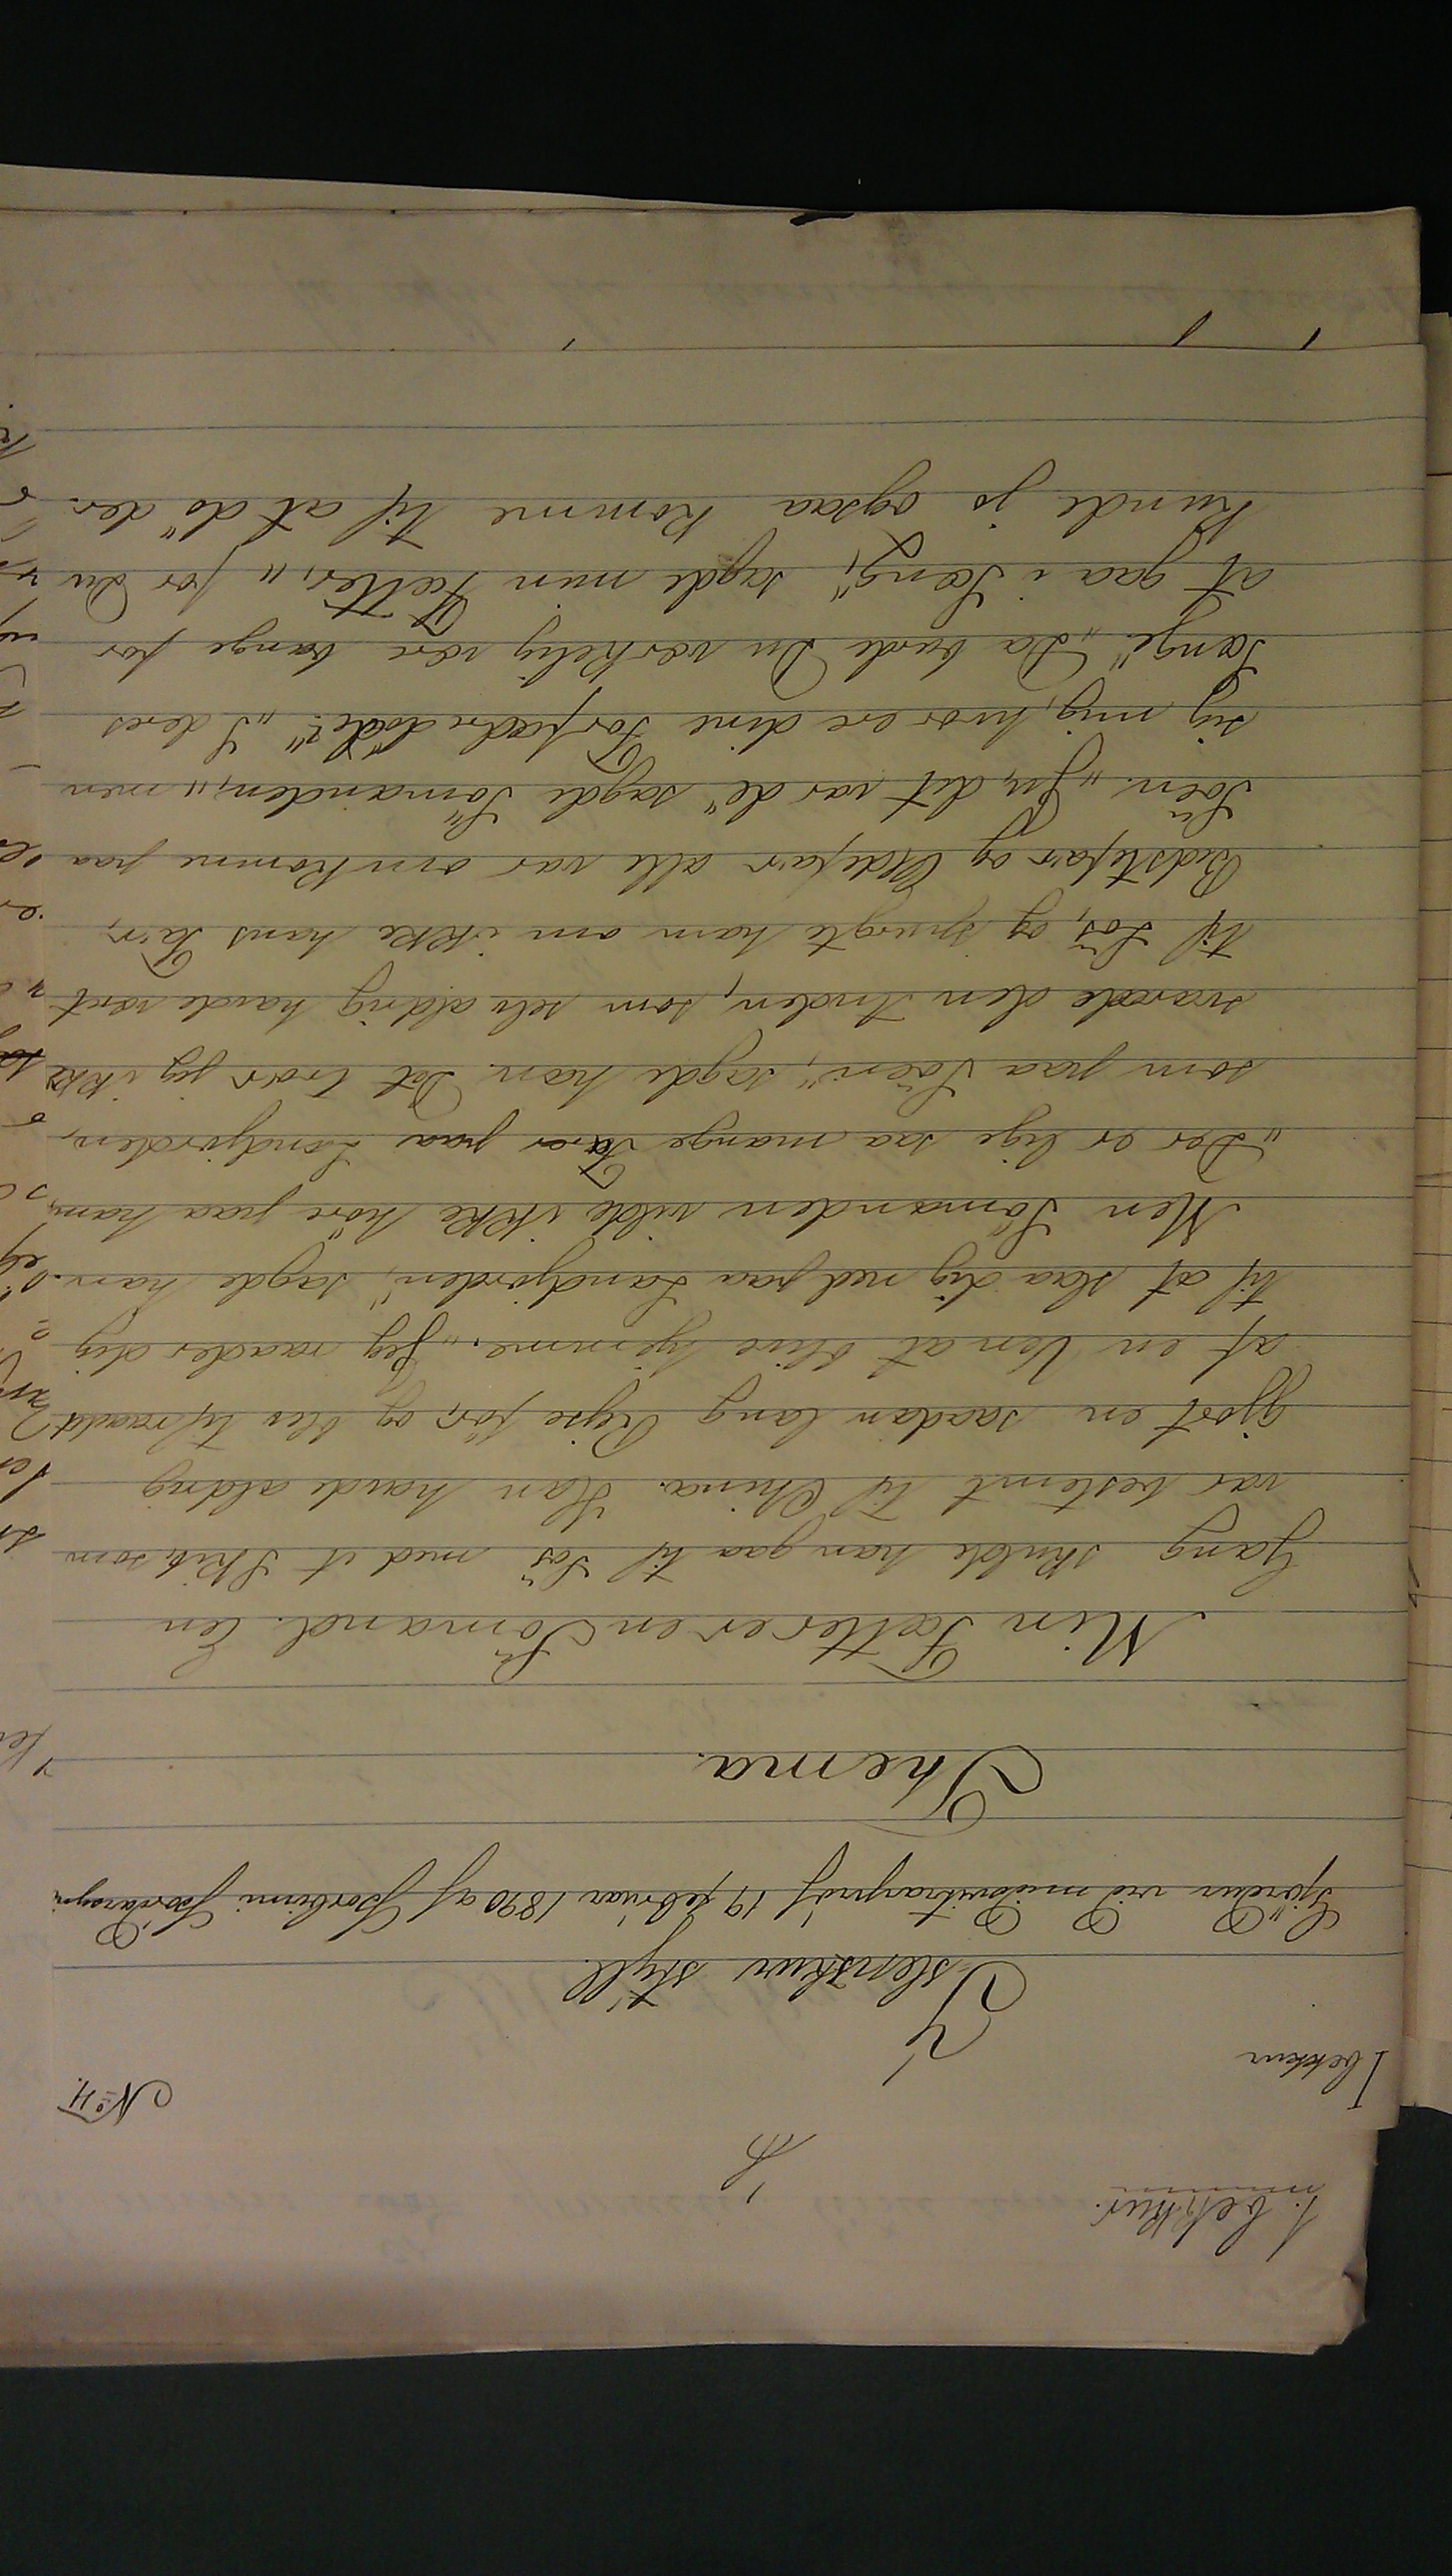 1. bekkur.
h
I bekkur
No 4.
Í
Íslenskur stýll
gjörður við miðsvetrarpróf 19 febrúar 1890 af Þorbirni Þórðarsyni
Thema.
Min Fætter er en Sömand. En
Gang skulde han gaa til Sös med et Skib, som
var bestemt til China. Han havde aldrig
gjort en saadan lang Rejse før, og blev tilraadt
af en Ven at blive hjemme. „Jeg raader dig
til at slaa dig ned paa Landjorden", sagde han.
Men Sömanden vilde ikke høre paa ham,
„Der er lige saa mange Farer paa Landjorden,
som paa Söen", sagde han. Det tror jeg ikke
svarede den Anden, som selv aldrig havde vært
til Sös, og spurgte ham om ikke hans Fa'r,
Bedstefa'r og Oldefa'r alle var omkomne paa
Söen. „Jo, det var de" sagde Sömanden, „men
sig mig, hvor ere dine Forfædre döde?" „I deres
Senge." „Da burde Du værkelig være bange for
at gaa i Seng," sagde min Fætter, „for Du
kunde jo ogsaa komme til at dö der.